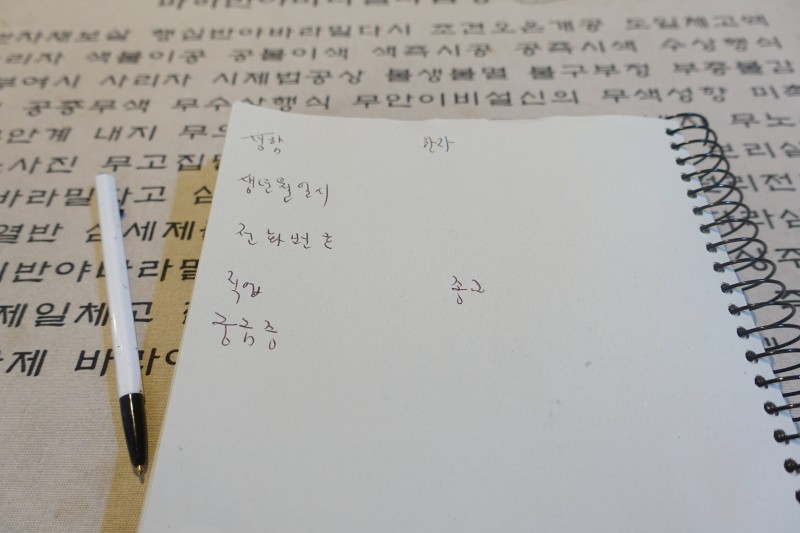 반야바라밀다시 조견오온개공 도일체고액
리자 색불이공 공불이색 색즉시공 공즉시색 수상행식
부여시 사리자 시제법공상 불생불멸 불구부정 부증불감
공중무색 무수상행식 무안이비설신의 무색성향 미촉
무안계 내지 무의 무노
사진 무고집멸 보리살
바라밀다고 심 보리전
열반 삼세제
반야바라밀
제일체고
바라아
성함 한자
생년월일시
전화번호
직업 종교
궁금증